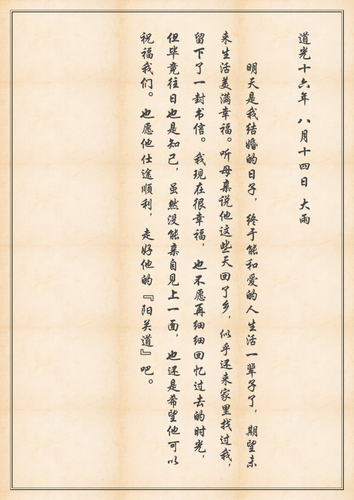 道光十六年 八月十四日 大雨
明天是我结婚的日子，终于能和爱的人生活一辈子了，期望未
来生活美满幸福。听母亲说他这些天回了乡，似乎还来家里找过我，
留下了一封书信。我现在很幸福，也不愿再细细回忆过去的时光，
但毕竟往日也是知己，虽然没能亲自见上一面，也还是希望他可以
祝福我们。也愿他仕途顺利，走好他的『阳关道』吧。